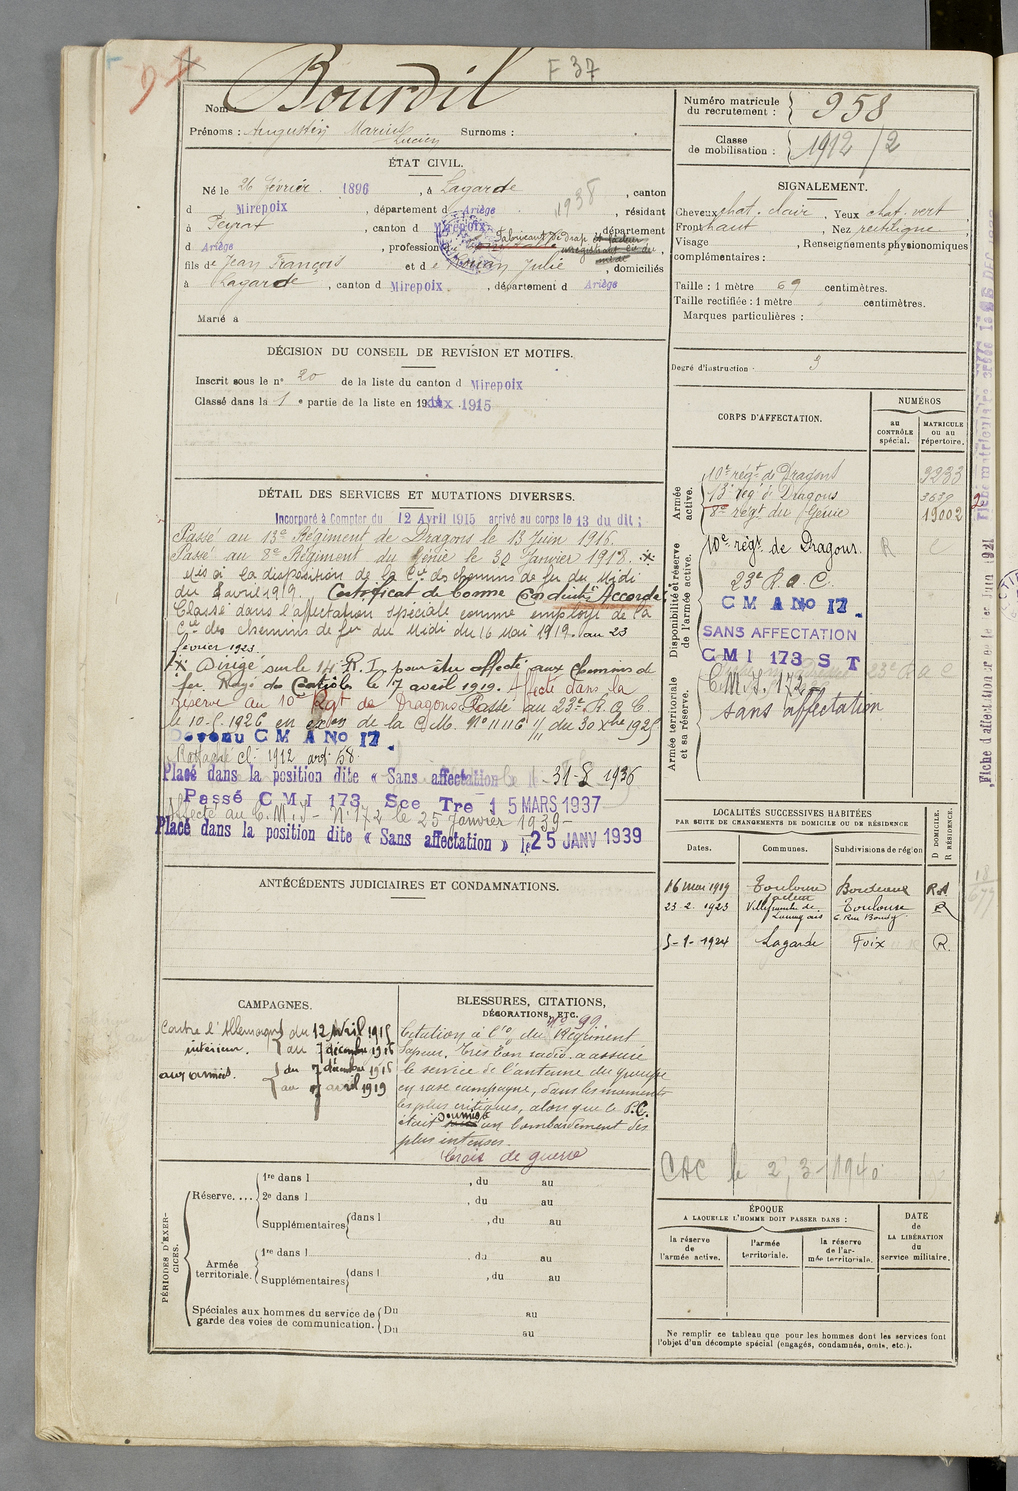 F 37
Nom : Bourdil
Prénoms : Augustin Marius Lucien Surnoms :
ÉTAT CIVIL.
Né le 26 février 1896, à Lagarde, canton
d Mirepoix, département d Ariège 1938, résidant
à Peyrat, canton d Mirepoix, département
d Ariège, profession d Fabricant de drap
fils de Jean François et de Julie, domiciliés
à Lagarde, canton d Mirepoix, département d Ariège
Marié à
DÉCISION DU CONSEIL DE REVISION ET MOTIFS.
Inscrit sous le n° 20 de la liste du canton d Mirepoix
Classé dans la 1e partie de la liste en 1915
DÉTAIL DES SERVICES ET MUTATIONS DIVERSES.
Incorporé à Compter du 12 Avril 1915 arrivé au corps le 13 du dit ;
Passé au 13e Régiment de Dragons le 13 Juin 1916.
Passé au 8e Régiment du Génie le 30 Janvier 1918. *
Mis à la disposition de la Cie des chemins de fer du Midi
du 8 avril 1919. Certificat de bonne Conduite Accordé.
Classé dans l'affectation spéciale comme employé de la
Cie des chemins de fer du Midi du 16 Mai 1919 au 23
février 1923.
* Dirigé sur le 14e R. I. pour être affecté aux Chemins de
fer. Rayé des Contrôles le 17 avril 1919. Affecté dans la
réserve au 10e Rgt de Dragons. Passé au 23e R. A. C.
le 10-5-1926 en exon de la C.M. N° 11.116 1/11 du 30 Xbre 1925
Devenu C M A No 17.
Rattaché cl. 1912 art 58.
Placé dans la position dite « Sans affectation 1936
Passé C M I 173 Sce Tre 15 MARS 1937
Affecté au C. M. I - N° 172 le 25 Janvier 1939 -
Placé dans la position dite « Sans affectation » le 25 JANV 1939
ANTÉCÉDENTS JUDICIAIRES ET CONDAMNATIONS.
CAMPAGNES.
Contre l'Allemagne du 12 Avril 1915
intérieur. au 7 décembre 1916
aux armées. du 7 décembre 1916
au avril 1919
BLESSURES, CITATIONS,
DÉCORATIONS, ETC.
Citation à l'o. du Régiment N° 99
Sapeur, très bon radio. a assuré
le service de l'antenne du groupe
en rase campagne, dans les moments
les plus critiques, alors que le P.C.
était soumis à un bombardement des
plus intenses.
Croix de guerre
PÉRIODES D'EXERCICES.
Réserve.... 1re dans l , du au
2e dans l , du au
Supplémentaires dans l , du au
Armée territoriale. 1re dans l du au
Supplémentaires dans l , du au
Spéciales aux hommes du service de garde des voies de communication. Du au
Du au
Numéro matricule du recrutement : 958
Classe de mobilisation : 1912 / 2
SIGNALEMENT.
Cheveux chat. clair, Yeux chat. vert
Front haut, Nez rectiligne
Visage , Renseignements physionomiques
complémentaires :
Taille : 1 mètre 69 centimètres.
Taille rectifiée : 1 mètre centimètres.
Marques particulières :
Degré d'instruction : 3
CORPS D'AFFECTATION.
NUMÉROS
au CONTRÔLE spécial.
MATRICULE ou au répertoire.
Armée active.
10e régt de Dragons 3233
13e régt de Dragons
8e régt du Génie 19002
Disponibilité et réserve de l'armée active.
10e régt de Dragons.
23e R. A. C.
C M A No 17.
SANS AFFECTATION
C M I 173 S T
Armée territoriale et sa réserve.
C. M. I. 172
sans affectation
LOCALITÉS SUCCESSIVES HABITÉES
PAR SUITE DE CHANGEMENTS DE DOMICILE OU DE RÉSIDENCE
Dates. Communes. Subdivisions de région D DOMICILE. R RÉSIDENCE.
16 mai 1919 Toulouse Bordeaux
23 2. 1923 Villefranche de Lauragais Toulouse R
5-1-1924 Lagarde Foix R.
CAC le 2, 3-1940
ÉPOQUE
A LAQUELLE L'HOMME DOIT PASSER DANS :
la réserve de l'armée active.
l'armée territoriale.
la réserve de l'armée territoriale.
DATE de LA LIBÉRATION du service militaire.
Ne remplir ce tableau que pour les hommes dont les services font
l'objet d'un décompte spécial (engagés, condamnés, omis, etc.).